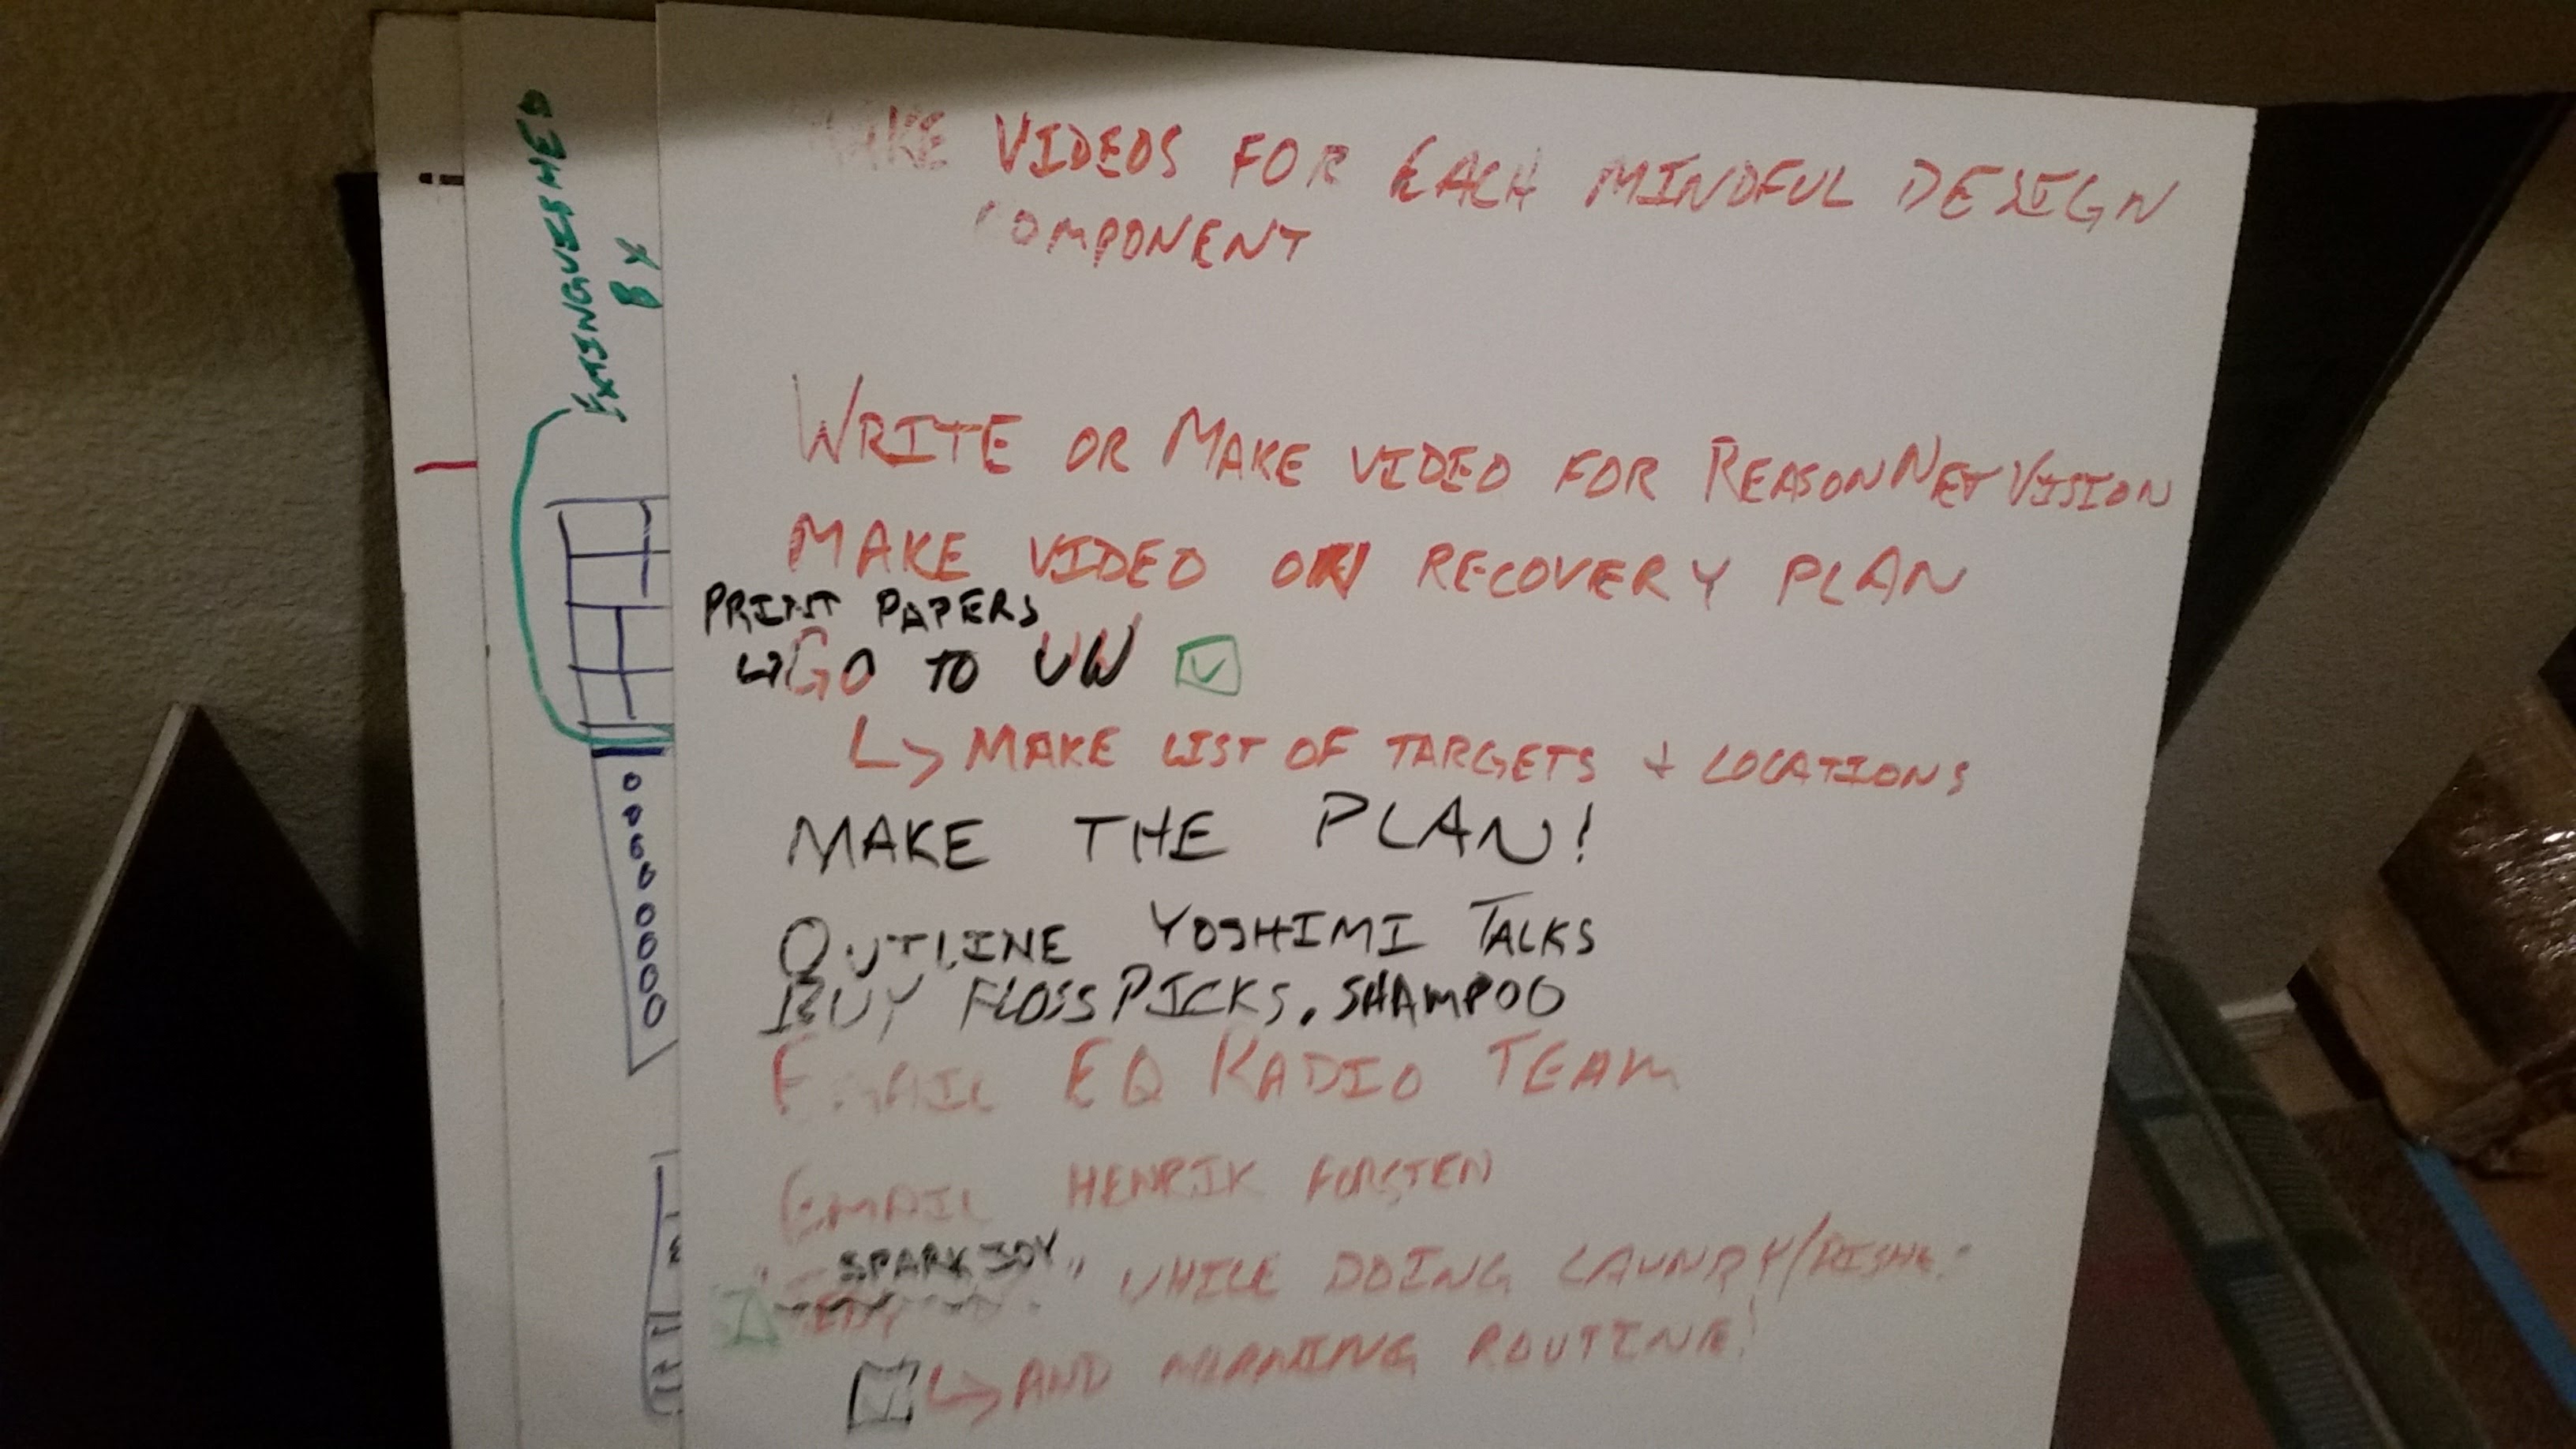 EXTINGUISHED
BY
MAKE VIDEOS FOR EACH MINDFUL DESIGN
COMPONENT
WRITE OR MAKE VIDEO FOR REASONNET VISION
MAKE VIDEO ON RECOVERY PLAN
PRINT PAPERS
↳ GO TO UW ☑
↳ MAKE LIST OF TARGETS + LOCATIONS
MAKE THE PLAN!
OUTLINE YOSHIMI TALKS
BUY FLOSS PICKS, SHAMPOO
EMAIL EQ RADIO TEAM
EMAIL HENRIK FORSTEN
"SPARK JOY" WHILE DOING LAUNDRY/DISHES
☑ ↳ AND MORNING ROUTINE!